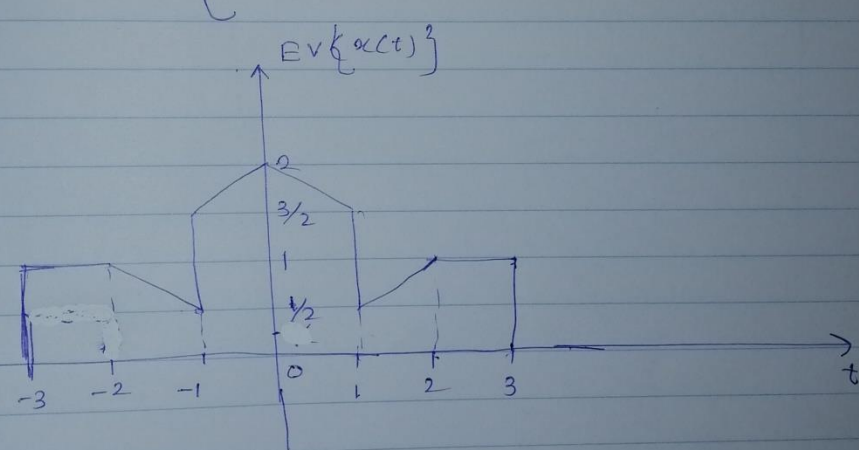 EV{x(t)}
2
3/2
1
1/2
0
-3 -2 -1 1 2 3 t